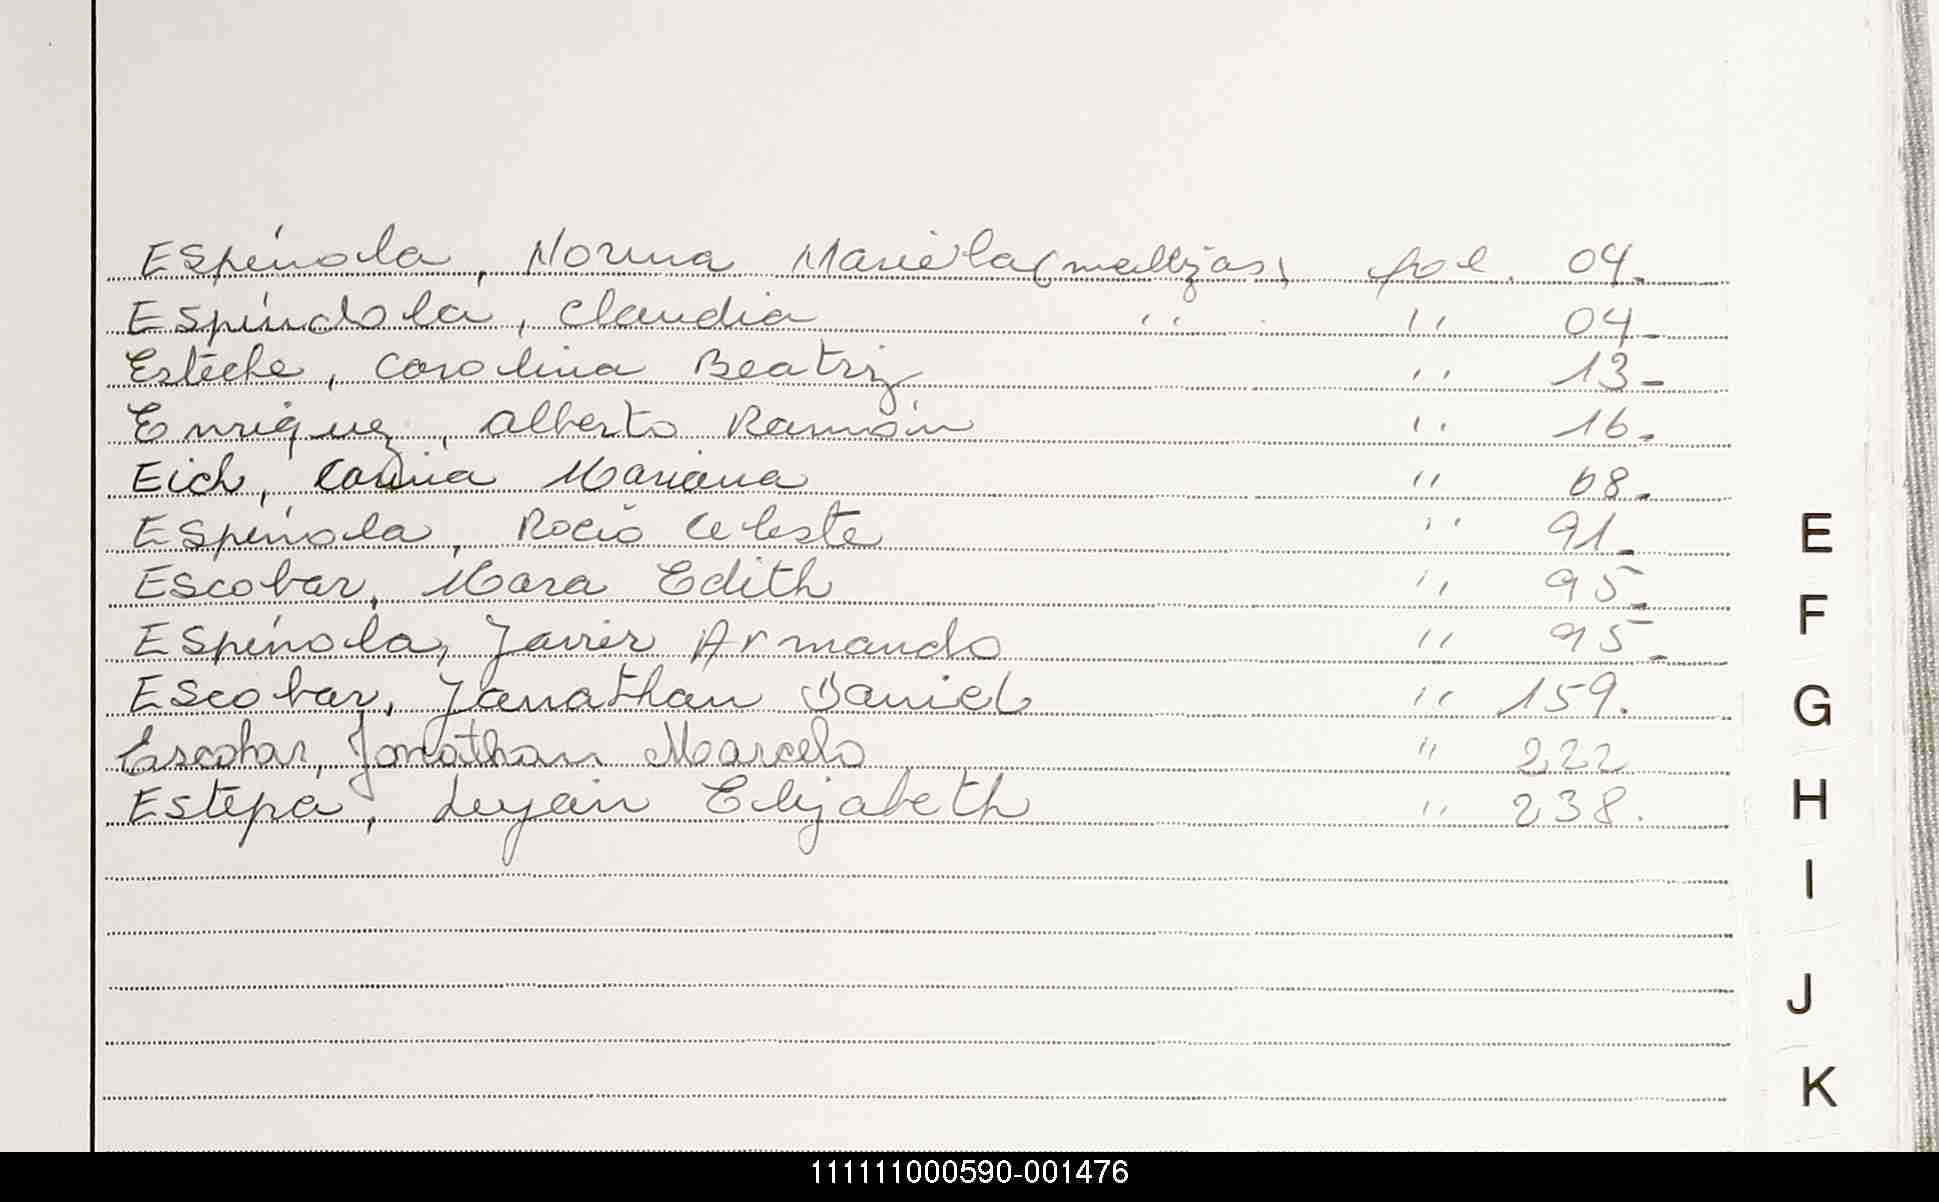 Espínola, Norma Mariela (mellizas) fol. 04.
Espíndola, Claudia " " 04-
Esteche, Carolina Beatriz " 13-
Enriquez, Alberto Ramón " 16.
Eich, Carina Mariana " 68.
Espínola, Rocío Celeste " 91-
Escobar, Mara Edith " 95-
Espínola, Javier Armando " 95-
Escobar, Jonathan Daniel " 159.
Escobar, Jonathan Marcelo " 222
Estepa, Elizabeth " 238.
E
F
G
H
I
J
K
111111000590-001476